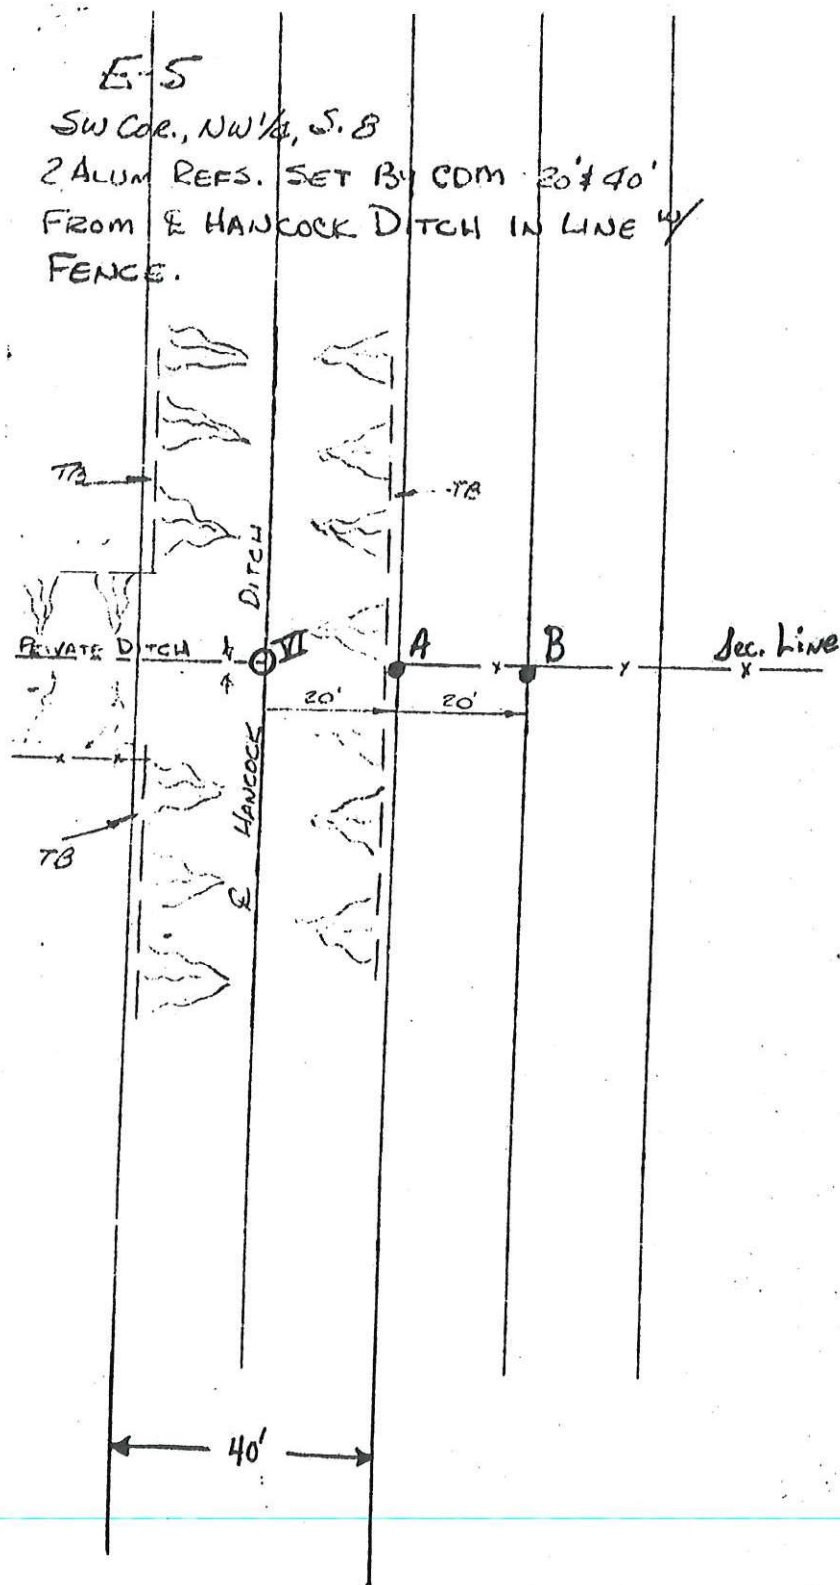 E-5
SW COR., NW 1/4, S. 8
2 ALUM REFS. SET BY CDM 20' & 40'
FROM ℄ HANCOCK DITCH IN LINE W/
FENCE.
TB
TB
DITCH
PRIVATE DITCH
VI
A
B
Sec. Line
20'
20'
℄ HANCOCK
TB
40'